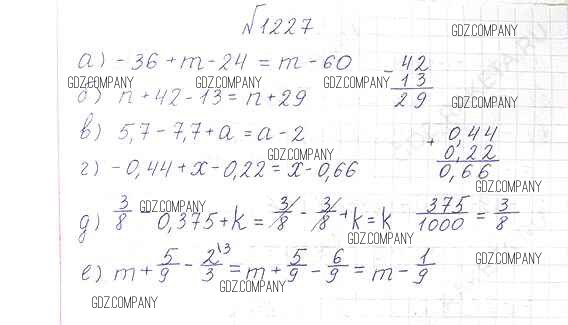 №1227
GDZ.COMPANY
а) -36 + m - 24 = m - 60
- 42
13
29
GDZ.COMPANY GDZ.COMPANY GDZ.COMPANY
б) n + 42 - 13 = n + 29
GDZ.COMPANY
в) 5,7 - 7,7 + a = a - 2
+ 0,44
0,22
0,66
GDZ.COMPANY
г) -0,44 + x - 0,22 = x - 0,66
GDZ.COMPANY
GDZ.COMPANY
д) 3/8 - 0,375 + k = 3/8 - 3/8 + k = k 375/1000 = 3/8
GDZ.COMPANY
е) m + 5/9 - 2\3/3 = m + 5/9 - 6/9 = m - 1/9
GDZ.COMPANY
GDZ.COMPANY
GDZ.COMPANY